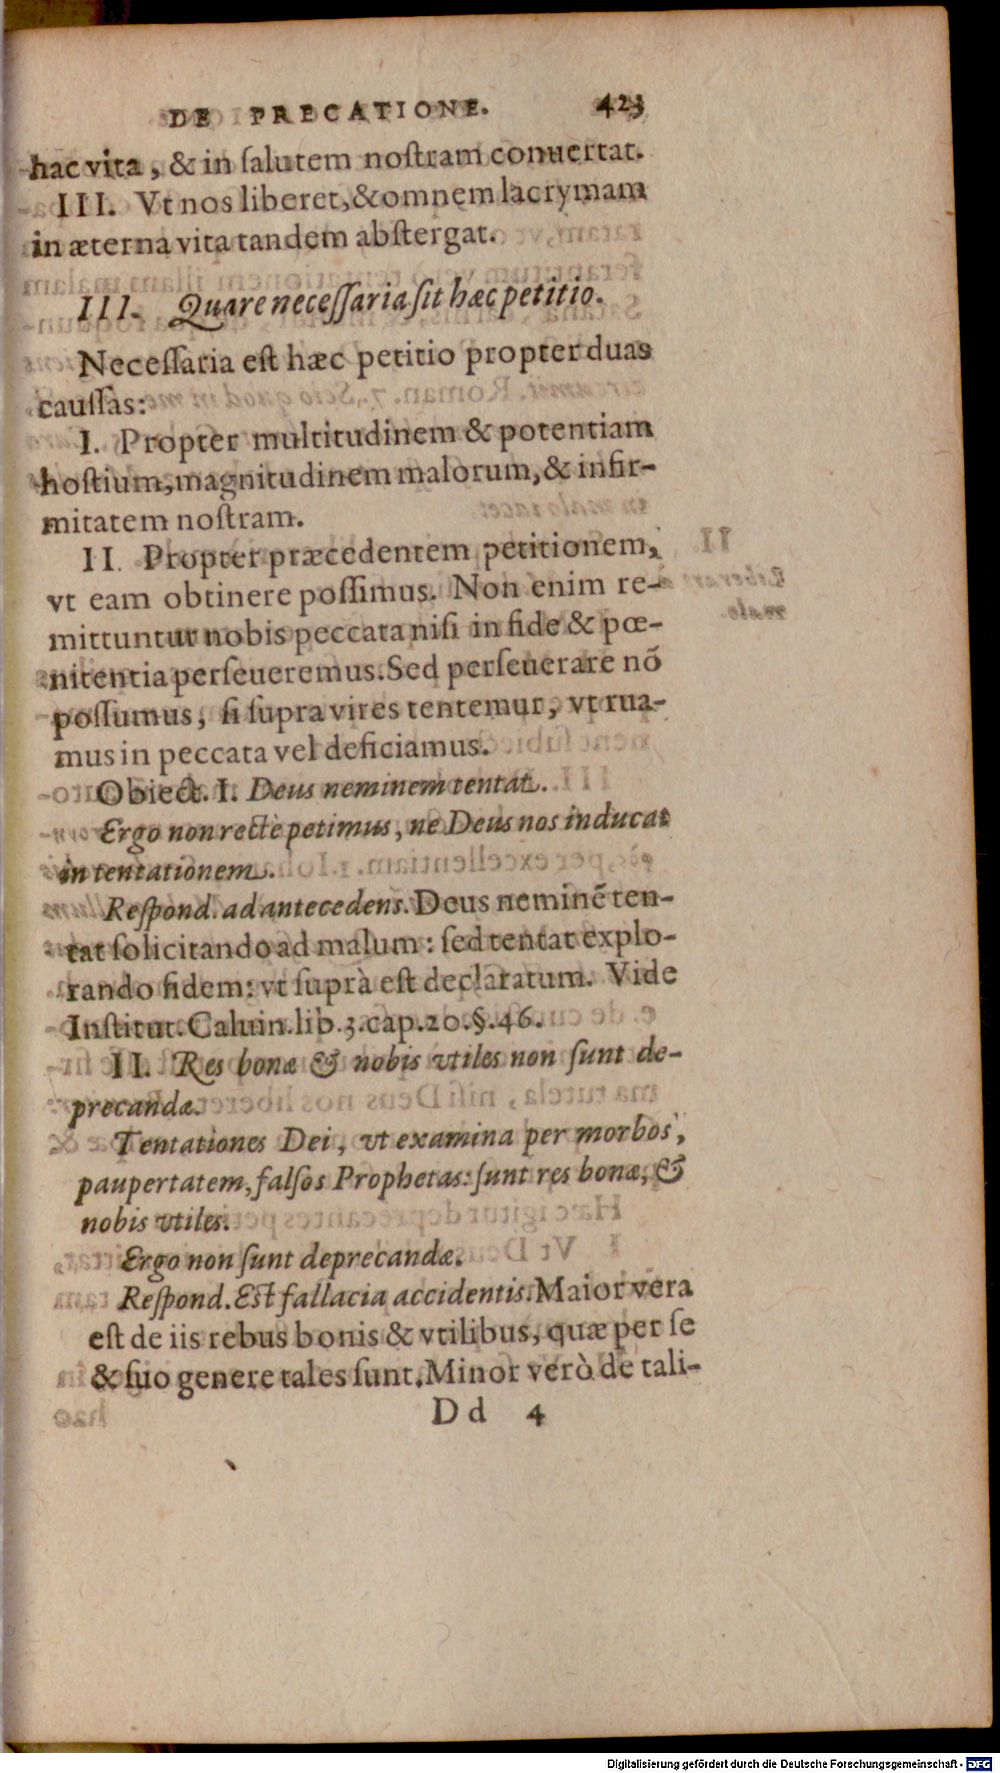 DE PRECATIONE. 423
hac vita, & in ſalutem noſtram conuertat.
III. Vt nos liberet, & omnem lacrymam
in æterna vita tandem abſtergat.
III. Quare neceſſaria ſit hæc petitio.
Neceſſaria eſt hæc petitio propter duas
cauſſas:
I. Propter multitudinem & potentiam
hoſtium, magnitudinem malorum, & infir-
mitatem noſtram.
II. Propter præcedentem petitionem,
vt eam obtinere poſſimus. Non enim re-
mittuntur nobis peccata niſi in fide & pœ-
nitentia perſeueremus. Sed perſeuerare nō
poſſumus, ſi ſupra vires tentemur, vt rua-
mus in peccata vel deficiamus.
Obiect. I. Deus neminem tentat.
Ergo non rectè petimus, ne Deus nos inducat
in tentationem.
Reſpond. ad antecedens. Deus neminē ten-
tat ſolicitando ad malum: ſed tentat explo-
rando fidem: vt ſuprà eſt declaratum. Vide
Inſtitut. Caluin. lib. 3. cap. 20. §. 46.
II. Res bonæ & nobis vtiles non ſunt de-
precandæ.
Tentationes Dei, vt examina per morbos,
paupertatem, falſos Prophetas: ſunt res bonæ, &
nobis vtiles.
Ergo non ſunt deprecandæ.
Reſpond. Eſt fallacia accidentis. Maior vera
eſt de iis rebus bonis & vtilibus, quæ per ſe
& ſuo genere tales ſunt. Minor verò de tali-
Dd 4
Digitalisierung gefördert durch die Deutsche Forschungsgemeinschaft - DFG